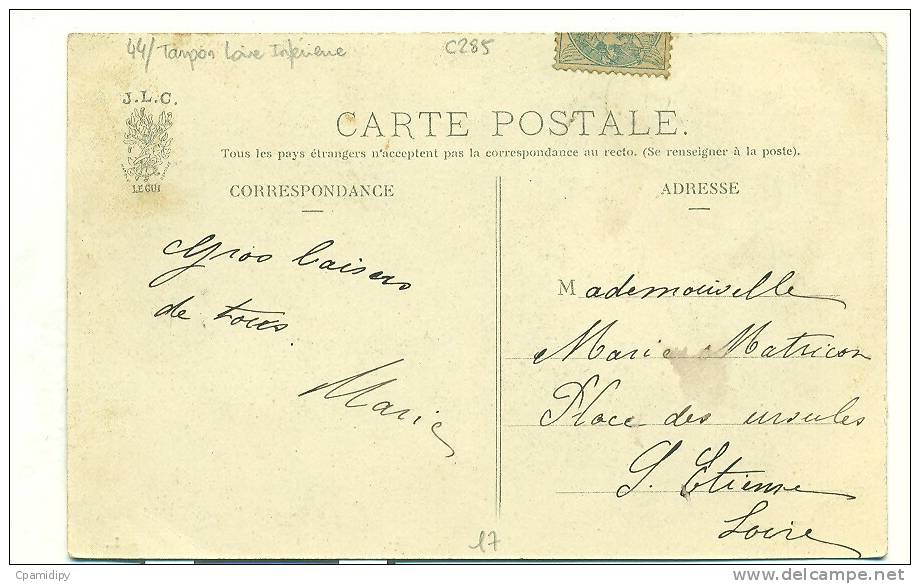 44/ Tampon Loire Inférieure
C285
J.L.C.
LE GUI
CARTE POSTALE.
Tous les pays étrangers n'acceptent pas la correspondance au recto. (Se renseigner à la poste).
CORRESPONDANCE
ADRESSE
Gros baisers
de tous.
Marie
Mademoiselle
Marie Matricon
Place des ursules
S. Etienne
Loire
17
Cpamidipy
www.delcampe.net